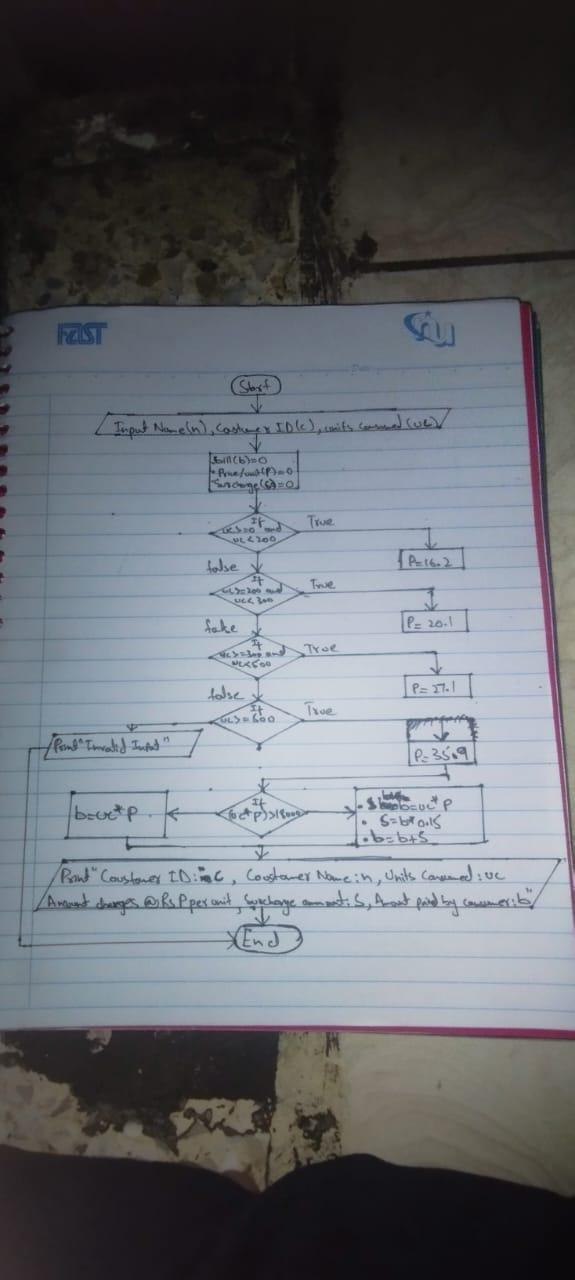 FAST
NU
Start
Input Name(n), Costumer ID(c), units consumed (uc)
bill(b)=0
• Price/unit(P)=0
Surcharge(S)=0
If
uc>=0 and
uc<200
True
P=16.2
false
If
uc>=200 and
uc<300
True
P= 20.1
false
If
uc>=300 and
uc<500
True
P= 27.1
false
If
uc>=500
True
Print "Invalid Input"
P=35.9
b=uc*P
If
(uc*P)>18000
b=uc*P
• S=b*0.15
• b=b+S
Print "Coustomer ID: c, Coustomer Name: n, Units Consumed: uc
Amount charges @Rs P per unit, Surcharge amount: S, Amont paid by consumer: b"
End